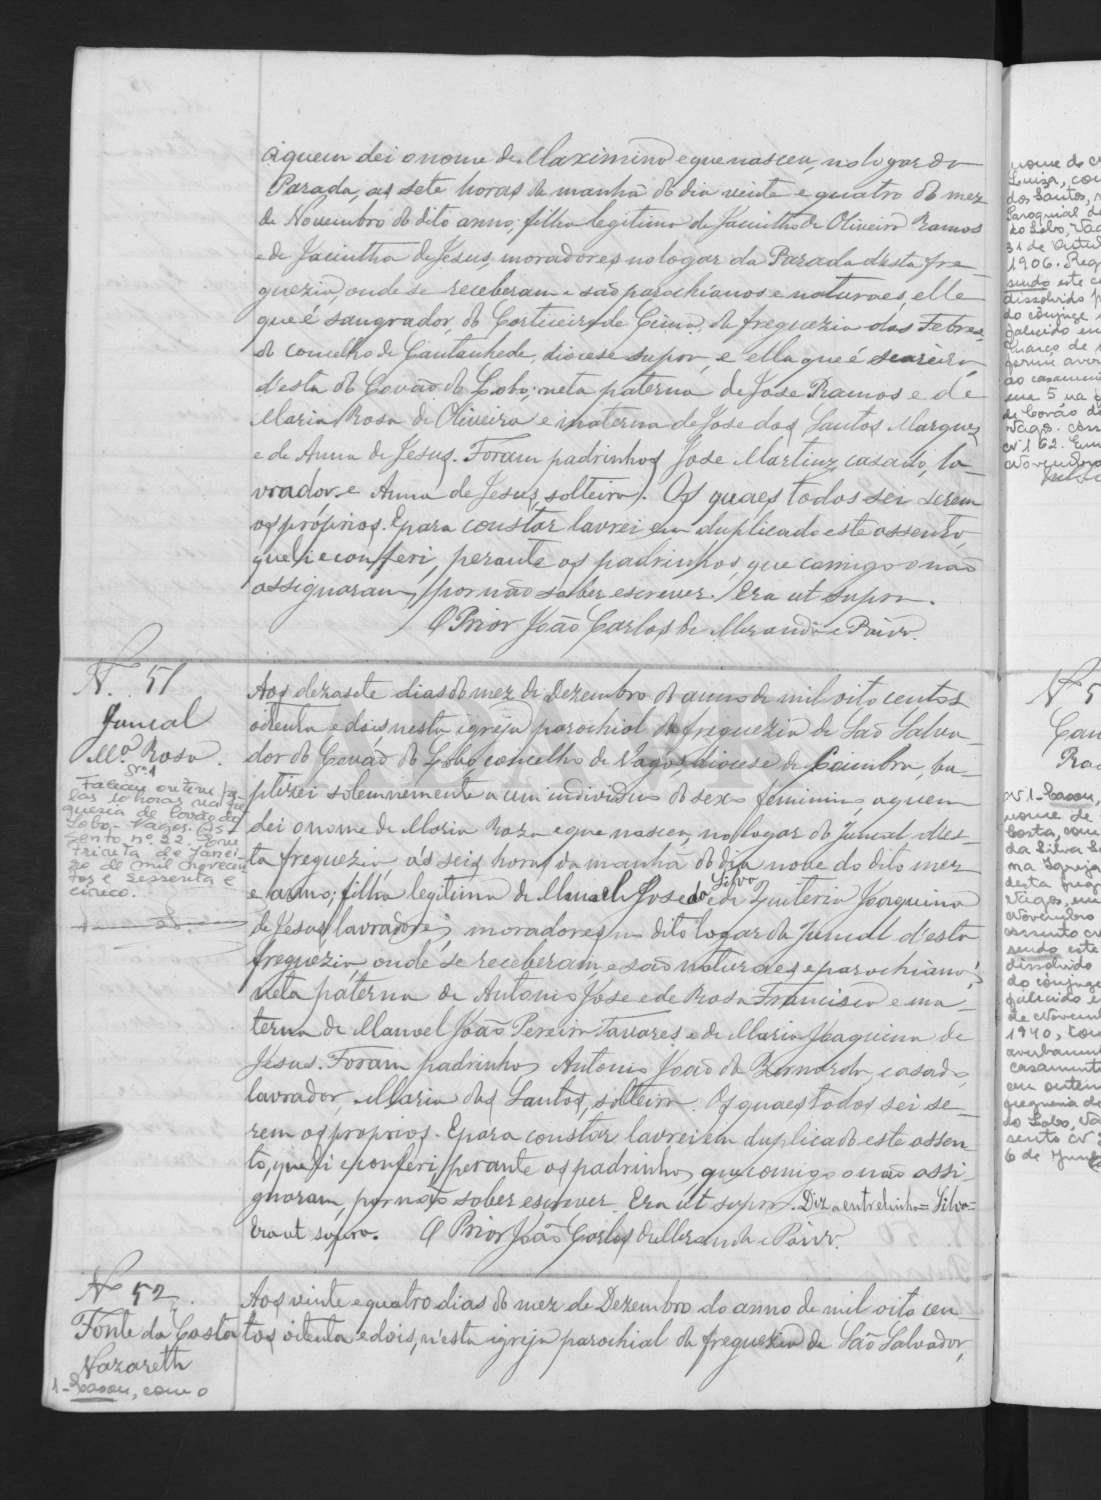 a quem dei o nome de Maximino e que nasceu, no logar da
Parada, as sete horas da manhã do dia vinte e quatro do mez
de Novembro do dito anno; filho legitimo de Jacintho de Oliveira Ramos
e de Jacintha de Jesus, moradores no logar da Parada d'esta fre-
guezia, onde se receberam e são parochianos e naturaes, elle
que é sangrador, de Corticeiro de Cima, da freguezia das Febres
do concelho de Cantanhede, diocese supra, e ella que é
d'esta do Covão do Lobo; neto paterno de José Ramos e de
Maria Rosa de Oliveira e materno de Jose dos Santos Marques
e de Anna de Jesus. Foram padrinhos Jose Martins, casado, la-
vrador e Anna de Jesus, solteira. Os quaes todos sei serem
os próprios. E para constar lavrei em duplicado este assento,
que li e conferi, perante os padrinhos, que comigo o não
assignaram, por não saber escrever. Era ut supra.
O Prior João Carlos de Miranda e Paiva.
N. 51
Juncal
M.ª Rosa.
Nº 1
Faleceu ontem pe-
las 10 horas na fre-
guesia de Covão do
Lobo - Vagos. As-
sento nº 22. Em
trinta de Janei-
ro de mil novecen-
tos e sessenta e
cinco.
Aos dezasete dias do mez de Dezembro do anno de mil oito centos
oitenta e dois nesta igreja parochial da freguezia de São Salva-
dor do Covão do Lobo, concelho de Vagos, diocese de Coimbra, ba-
ptizei solemnemente a um individuo do sexo feminino, a quem
dei o nome de Maria Roza e que nasceu, no logar do Juncal d'es-
ta freguezia, ás seis horas da manhã do dia nove do dito mez
e anno; filha legitima de Manoel Jose da Silva e de Quiteria Joaquina
de Jesus, lavradores, moradores no dito logar do Juncal d'esta
freguezia, onde se receberam, e são naturaes e parochianos;
neta paterna de Antonio Jose e de Rosa Francisca e ma-
terna de Manoel João Pereira Tavares e de Maria Joaquina de
Jesus. Foram padrinhos Antonio João da Bernarda, casado,
lavrador, Maria dos Santos, solteira. Os quaes todos sei se-
rem os proprios. E para constar lavrei em duplicado este assen-
to, que li e conferi, perante os padrinhos, que comigo o não assi-
gnaram, por não saber escrever. Era ut supra. Diz a entrelinha = Silva =
Era ut supra. O Prior João Carlos de Miranda e Paiva.
N. 52.
Fonte da Costa
Nazareth
1 - Casou, com o
Aos vinte e quatro dias do mez de Dezembro do anno de mil oito cen-
tos oitenta e dois, n'esta igreja parochial da freguezia de São Salvador,
nome de
Luiza, con
dos Santos,
Paroquial de
do Lobo, Vag
31 de Outu
1906.
sendo este ca
dissolvido p
do cônjuge
falecido em
Março de
ao casamen
de Covão do
Vagos.
Nº 162. Em
Novembro
Nº 5
Nº 1 - Casou,
nome de
Costa, com
da Silva
ma Igreja
desta freg
Vagos, em
Novembro
sendo este
dissolvido
do cônjuge
falecido e
de Novem
1940, con
averbament
casamento
em ontem
freguesia do
do Lobo, Va
sento Nº
6 de Junho